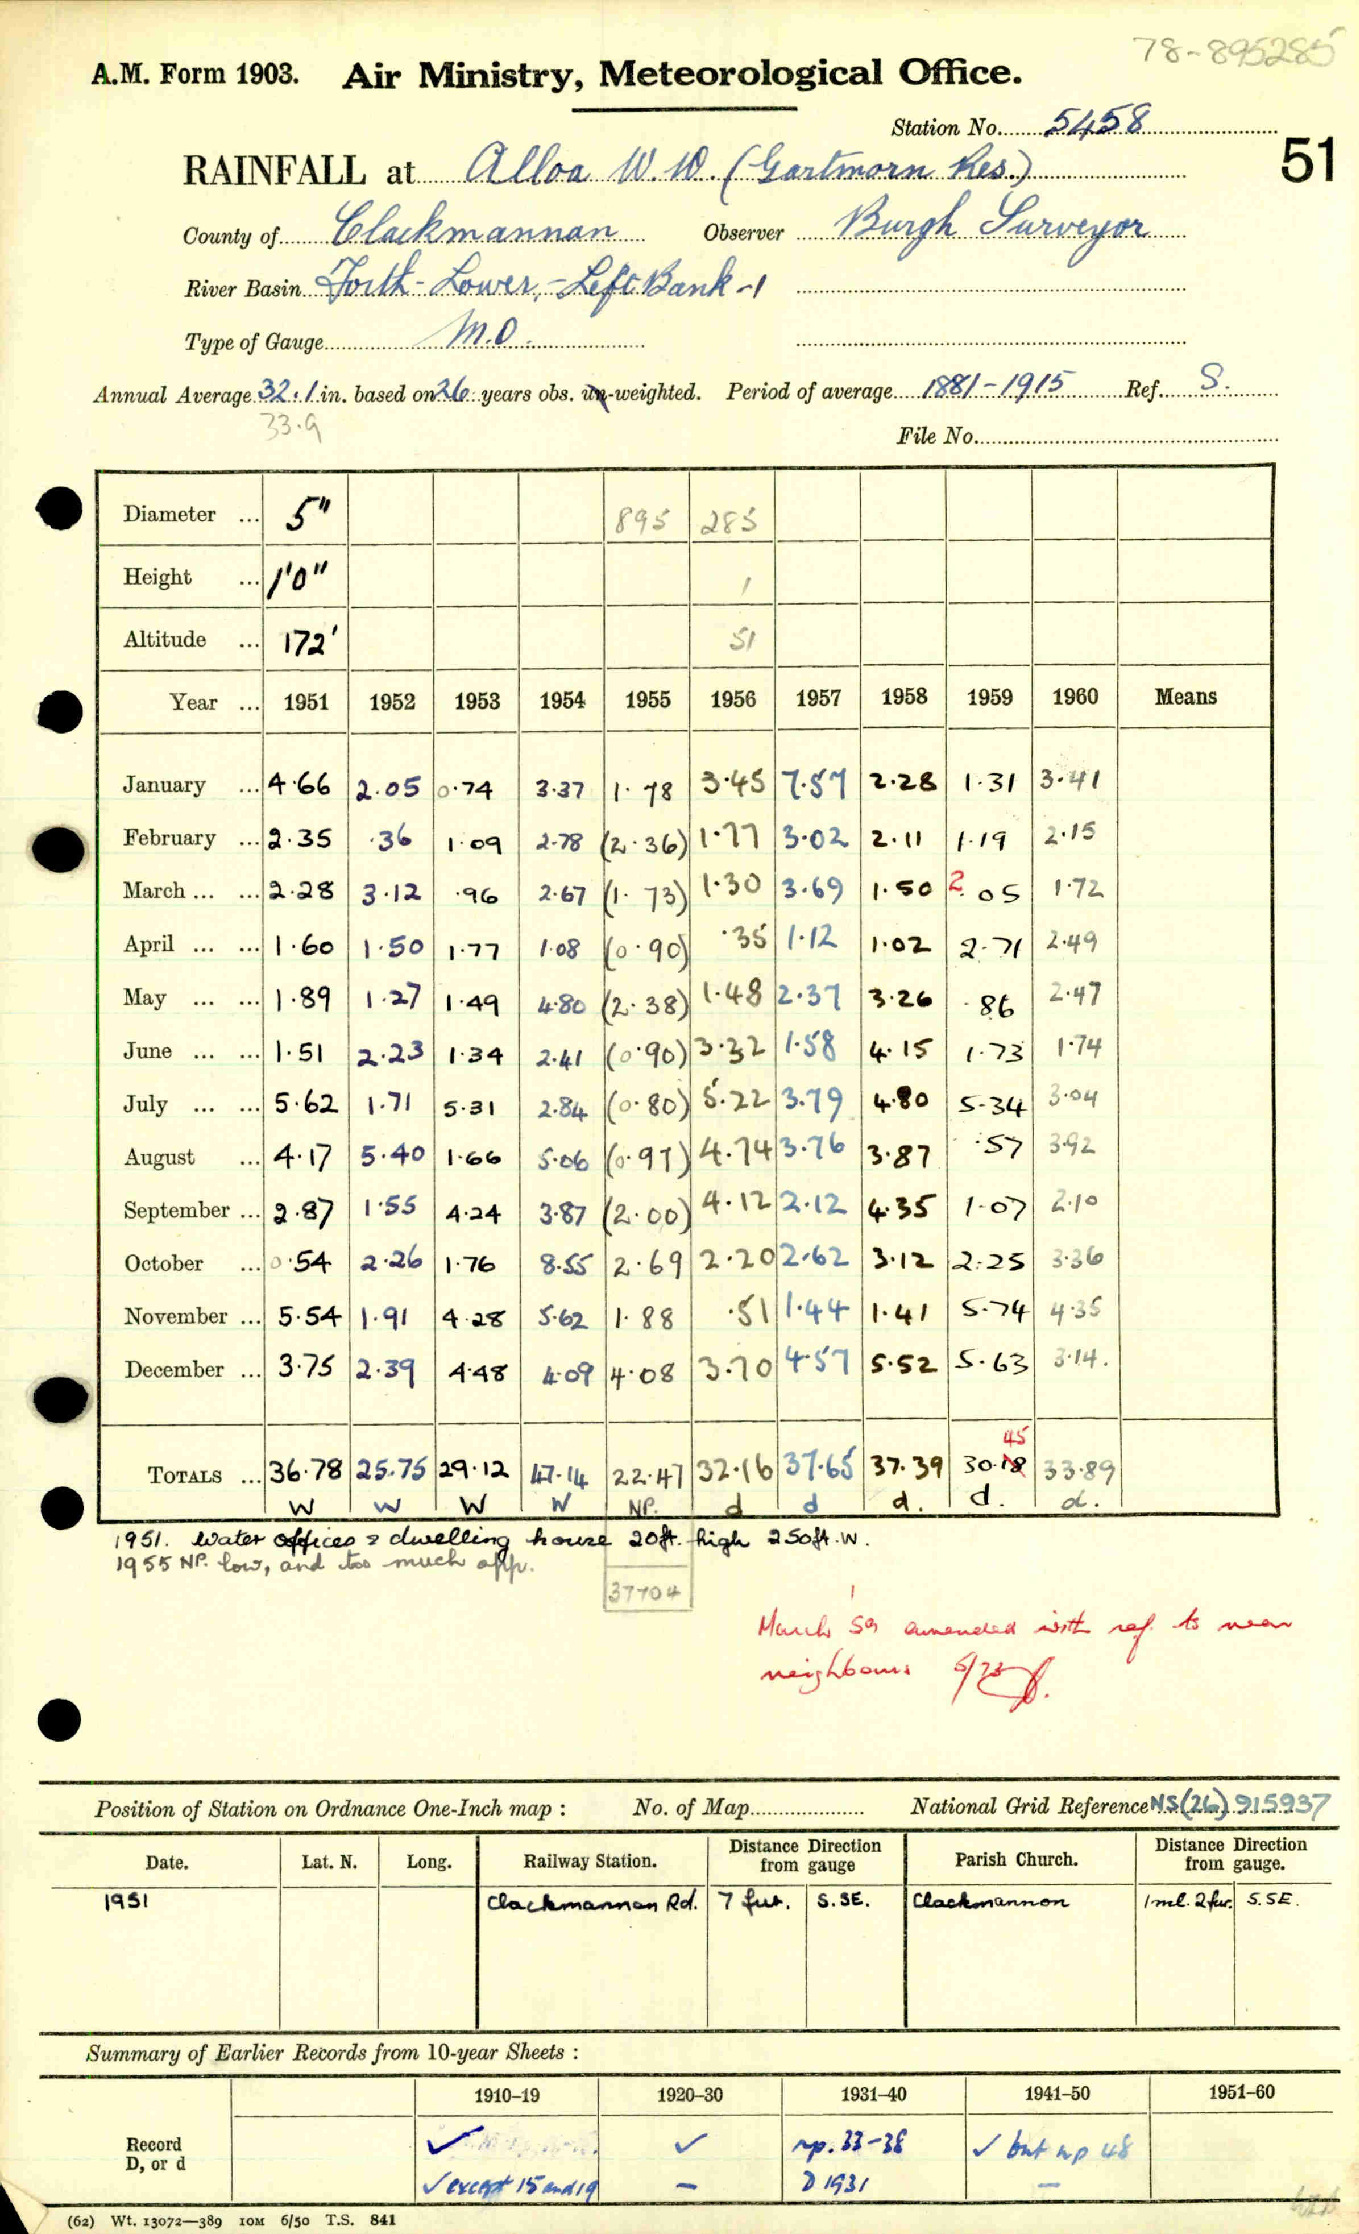 78-895285
A.M. Form 1903. Air Ministry, Meteorological Office.
Station No. 5458
51
RAINFALL at Alloa W.W. (Gartmorn Res.)
County of Clackmannan Observer Burgh Surveyor
River Basin Forth-Lower,-Left Bank-1
Type of Gauge M.O.
Annual Average 32.1 in. based on 26 years obs. un-weighted. Period of average 1881-1915 Ref. S.
33.9
File No.
Diameter ... 5" 895 285
Height ... 1'0" 1
Altitude ... 172' 51
Year ... 1951 1952 1953 1954 1955 1956 1957 1958 1959 1960 Means
January ... 4.66 2.05 0.74 3.37 1.78 3.45 7.57 2.28 1.31 3.41
February ... 2.35 .36 1.09 2.78 (2.36) 1.77 3.02 2.11 1.19 2.15
March ... ... 2.28 3.12 .96 2.67 (1.73) 1.30 3.69 1.50 2.05 1.72
April ... ... 1.60 1.50 1.77 1.08 (0.90) .35 1.12 1.02 2.71 2.49
May ... ... 1.89 1.27 1.49 4.80 (2.38) 1.48 2.37 3.26 .86 2.47
June ... ... 1.51 2.23 1.34 2.41 (0.90) 3.32 1.58 4.15 1.73 1.74
July ... ... 5.62 1.71 5.31 2.84 (0.80) 5.22 3.79 4.80 5.34 3.04
August ... 4.17 5.40 1.66 5.06 (0.97) 4.74 3.76 3.87 .57 3.92
September ... 2.87 1.55 4.24 3.87 (2.00) 4.12 2.12 4.35 1.07 2.10
October ... 0.54 2.26 1.76 8.55 2.69 2.20 2.62 3.12 2.25 3.36
November ... 5.54 1.91 4.28 5.62 1.88 .51 1.44 1.41 5.74 4.35
December ... 3.75 2.39 4.48 4.09 4.08 3.70 4.57 5.52 5.63 3.14.
45
TOTALS ... 36.78 25.75 29.12 47.14 22.47 32.16 37.65 37.39 30.18 33.89
W W W W NP. d d d. d. d.
1951. Water offices & dwelling house 20ft. high 250ft. W.
1955 NP. low, and too much app.
37704
March '59 amended with ref. to near
neighbours 5/73
Position of Station on Ordnance One-Inch map : No. of Map National Grid Reference NS(26) 915937
Date. Lat. N. Long. Railway Station. Distance from gauge Direction Parish Church. Distance from gauge. Direction
1951 Clackmannan Rd. 7 fur. S.SE. Clackmannon 1 ml. 2 fur. S.SE.
Summary of Earlier Records from 10-year Sheets :
1910–19 1920–30 1931–40 1941–50 1951–60
Record ✓ ✓ np. 33-38 ✓ but np 48
D, or d ✓ except 15 and 19 – D 1931 –
(62) Wt. 13072—389 10M 6/50 T.S. 841